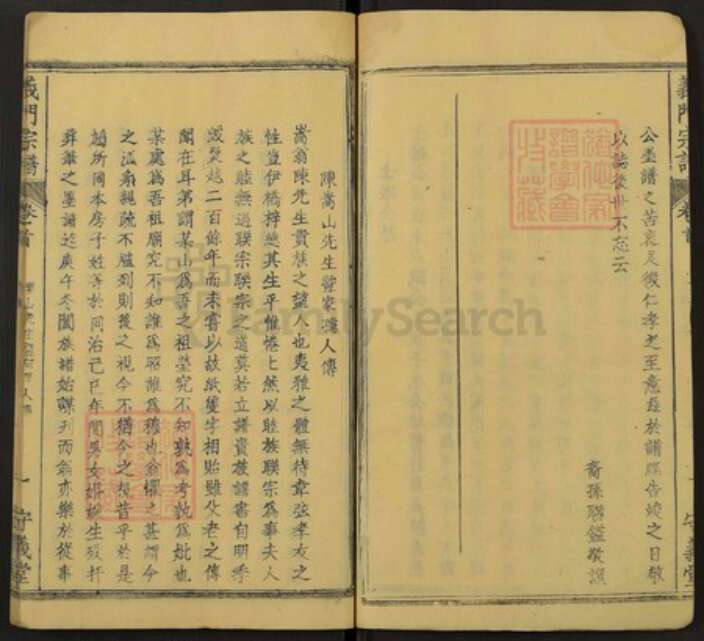 義門宗譜
卷首
一
守義堂
公垂譜之苦衷足徵仁孝之至意茲於譜牒告竣之日敬
以誌後世不忘云
裔孫聯鎰敬撰
陳嵩山先生
人傳
嵩翁陳先生貴族之望人也夷雅之體無待韋弦孝友之
性豈伊橋梓總其生平惟惓惓然以睦族聯宗為事夫人
族之睦無過聯宗聯宗之道莫若立譜貴族譜書自明季
二百餘年而來嘗以故紙隻字相貽雖父老之傳
聞在耳第謂某山為吾之祖塋究不知孰為考孰為妣也
某處為吾祖廟究不知誰為昭誰為穆也翁懼之甚謂今
之派系親疏不臚列則後之視今不猶今之視昔乎於是
趨所同本房子姓等於同治己巳年間男女婚娶生歿抒
葬
之墨譜迄庚午冬闔族譜始謀刊而翁亦樂於從事
義門宗譜
卷首
人傳
一
守義堂
FamilySearch